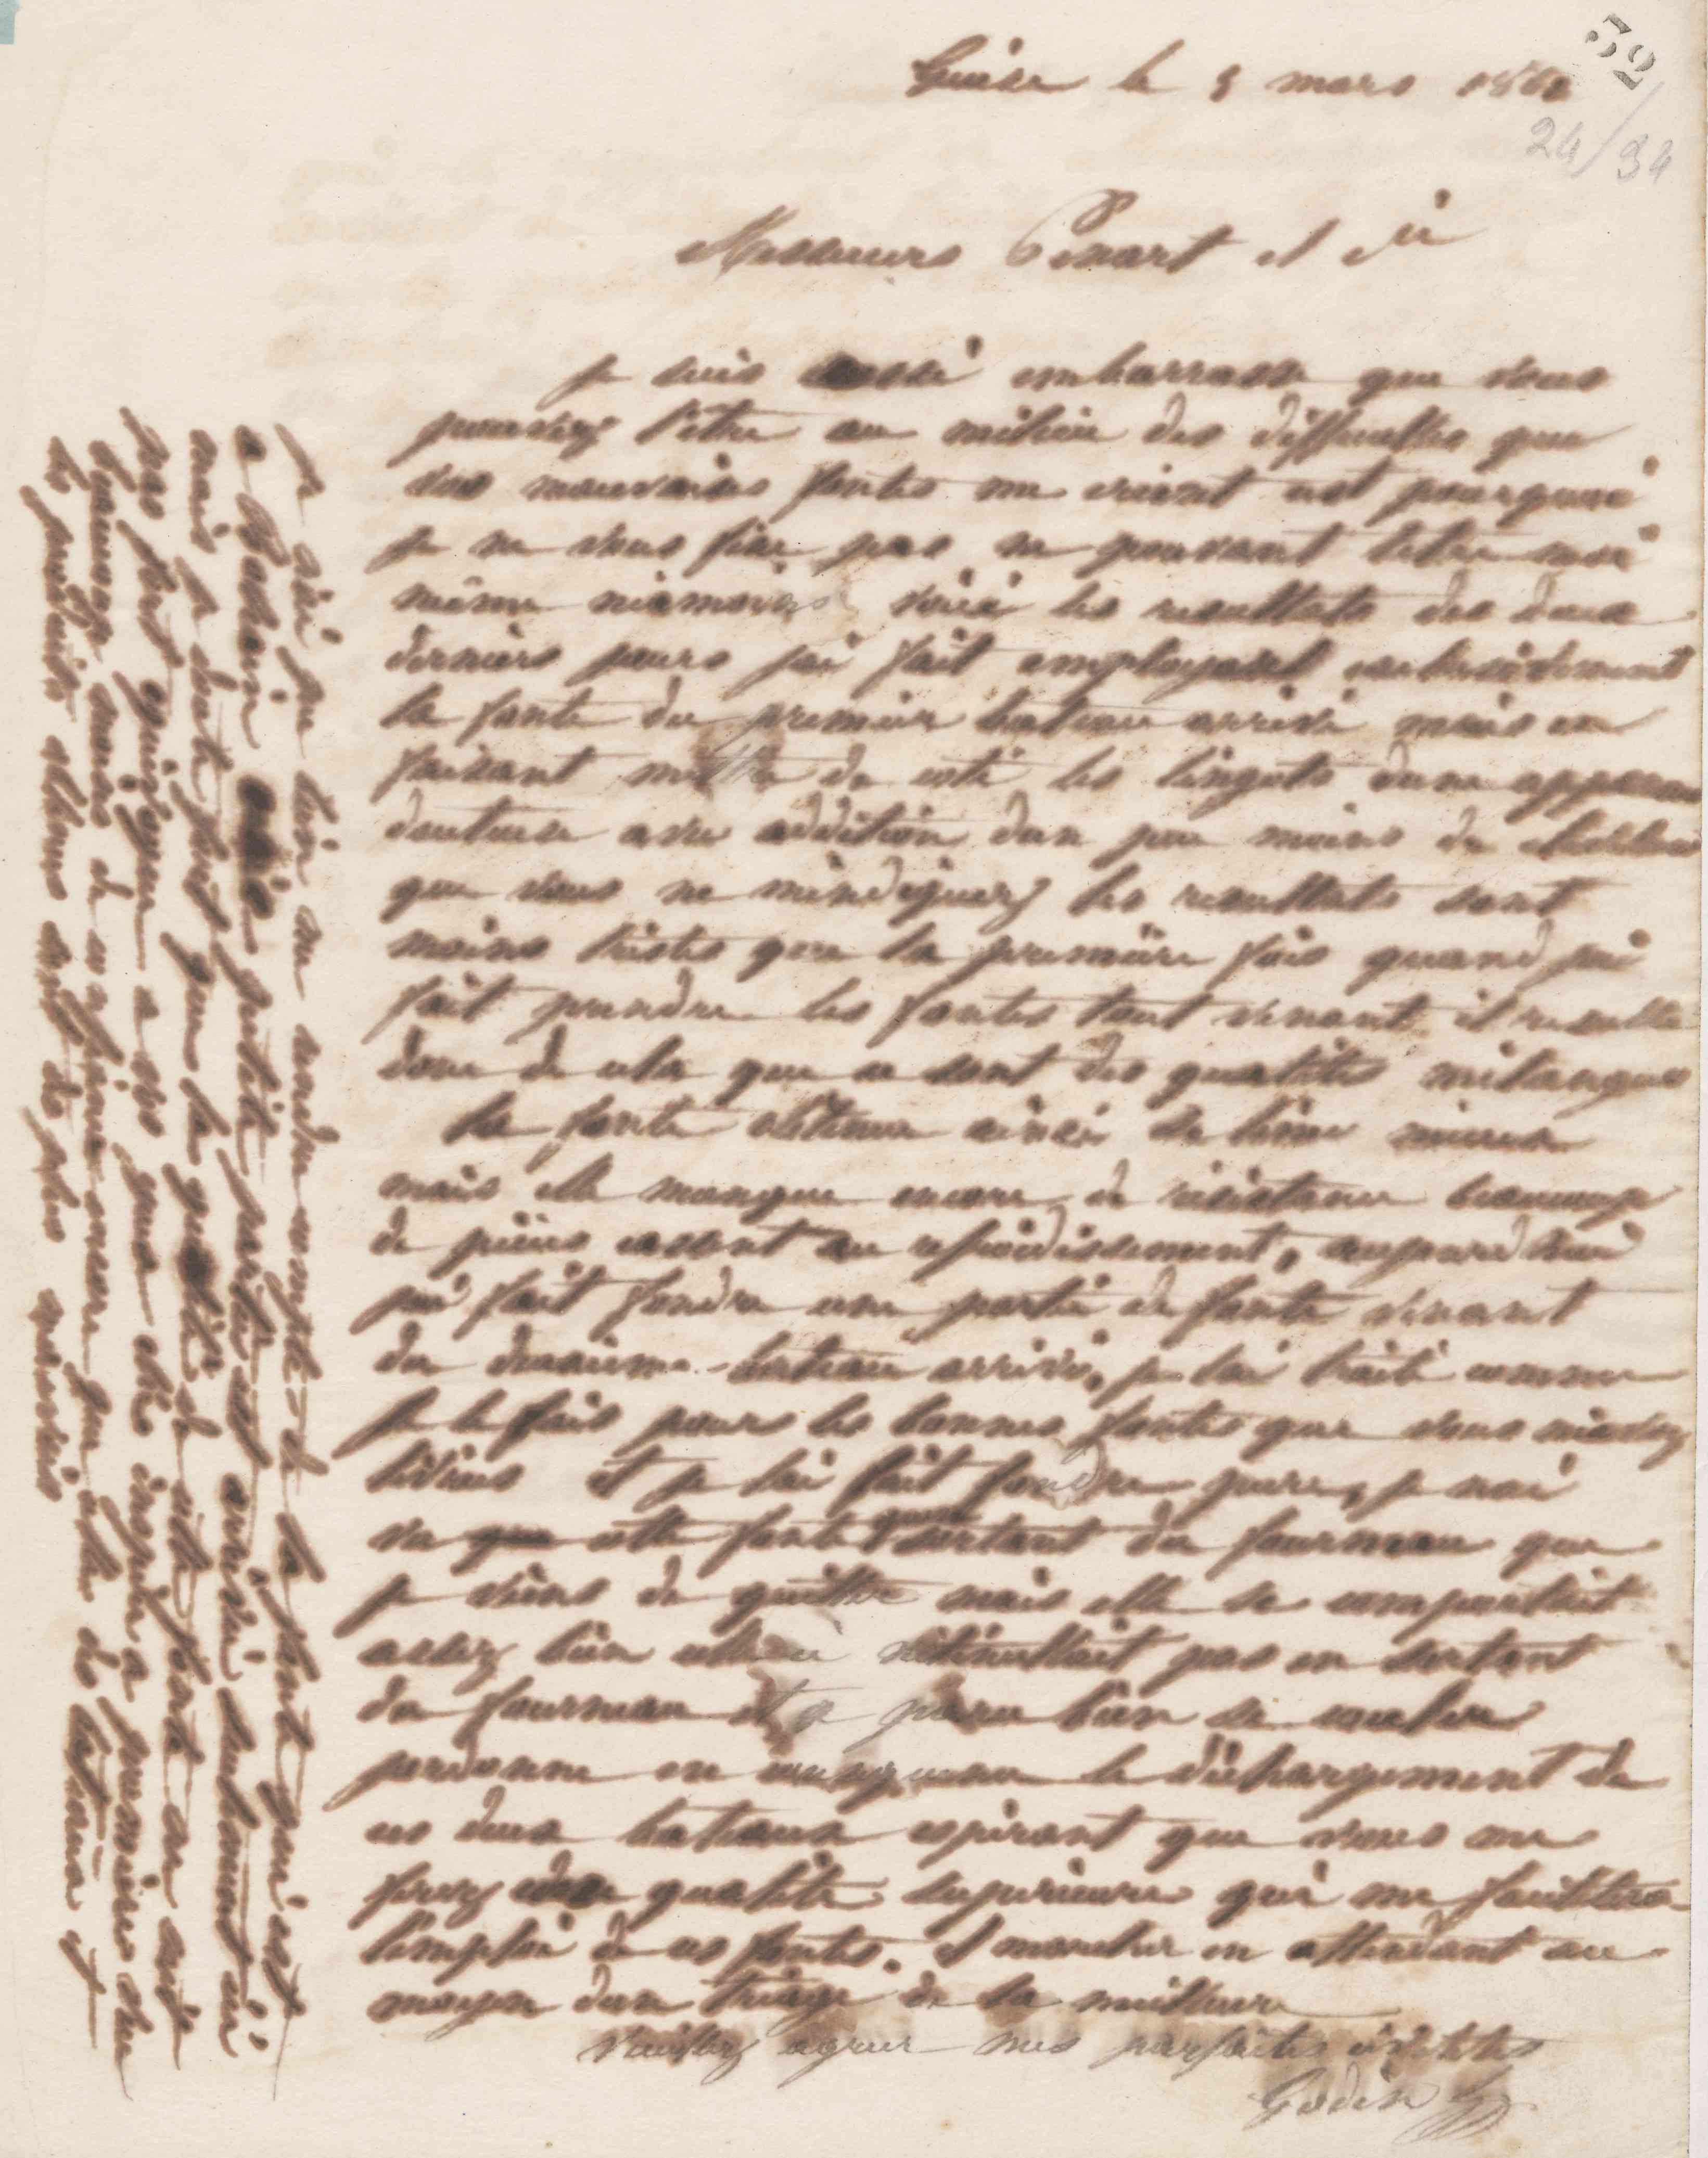 52
Guise le 3 mars 186
24/34
Messieurs Penart et Cie
je suis aussi embarrassé que vous
pouvez l'être au milieu des difficultés que
vos mauvaises fontes me créent c'est pourquoi
je ne vous fixe pas ne pouvant l'être moi
même néamoins voici les resultats des deux
derniers jours j'ai fait employer exclusivement
la fonte du premier bateau arrivé mais en
faisant mettre de coté les lingots d'une apparence
douteuse avec addition d'un peu moins de
que vous ne m'indiquez les resultats sont
moins tristes que la première fois quand j'ai
fait prendre les fontes tout venant il resulte
donc de cela que ce sont des qualités mélangées
la fonte obtenue ainsi se lime mieux
mais elle manque encore de résistance beaucoup
de pièces cassent au refroidissement, aujourd'hui
j'ai fait fondre une partie de fonte venant
du deuxième bateau arrivé, je l'ai traité comme
je le fais pour les bonnes fontes que vous m'avez
livrées et je l'ai fait fondre pure, je n'ai
vu que cette fonte sortant du fourneau que
je viens de quitter mais elle se comportait
assez bien elle n'étincellait pas en sortant
du fourneau et a paru bien se couler
j'ordonne en conséquence le déchargement de
ces deux bateaux espérant que vous me
ferez une qualité supérieure qui me facilitera
l'emploi de ces fontes. et marcher en attendant au
moyen d'un triage de la meilleure
Veuillez agréer mes parfaites civilités
Godin
je n'ai pu bien me rendre compte de la fonte qui est
a Bohain petite partie est arrivée seulement ici
mais je doute fort que la qualité de cette fonte ne soit
pas fort quoique a vos yeux elle inspire a première vue
beaucoup moins de confiance encore que celle de bateau et
le produit obtenu est des plus mauvais